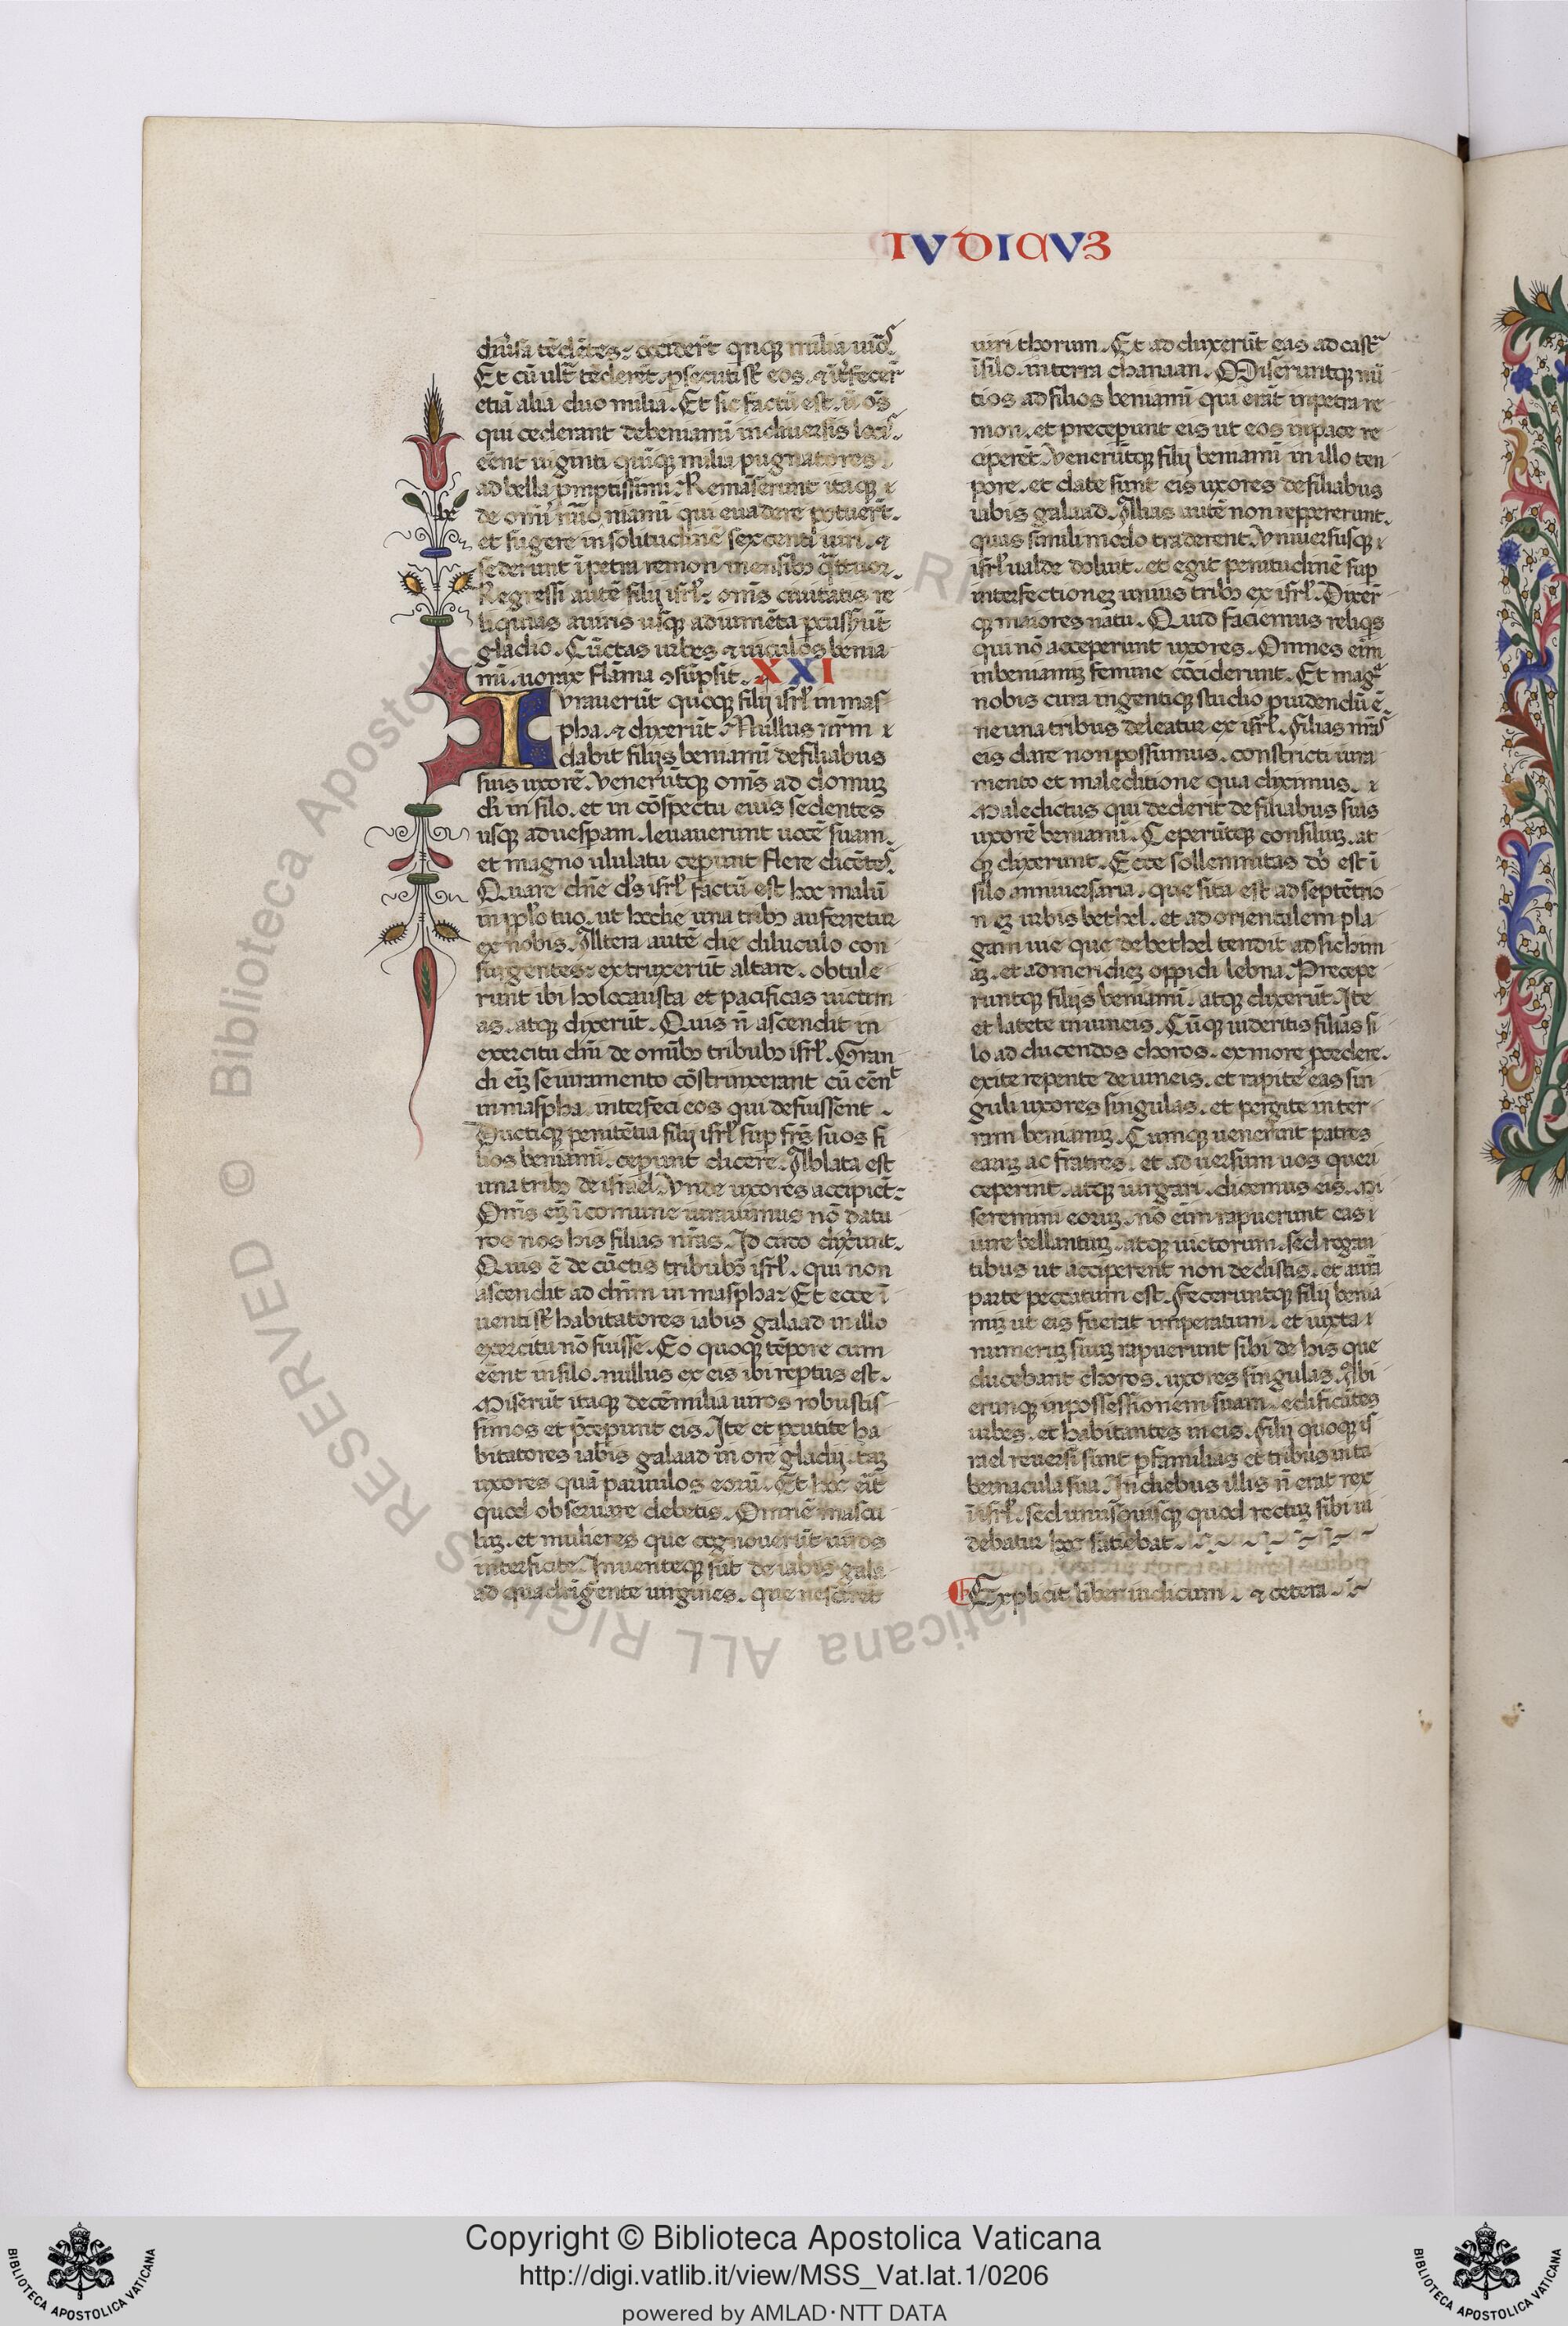 IVDICVꝫ
diu͛sa tēdētes: occiderūt q̄nqꝫ milia uiroꝝ.
Et cū ult͛ tēderēt. ꝑsecuti sūt eos. ⁊ īt͛fecer̄t
etiā alia duo milia. Et sic factū est. ut oēs
qui ceciderant de beniamī in diuersis locis.
eēnt uiginti quīqꝫ milia pugnatores
ad bella p̄mptissimi. Remāserunt itaqꝫ
de oīmi nūo niamī qui euadere potuerūt.
be
et fugere in solitudinē sexcenti uiri. ⁊
sederunt ī petra remon mensibꝰ q̄ttuor.
Regressi autē filij isrl̄. oīns ciuitatis re
liquias auiris usqꝫ ad iumēta ꝑcusserūt
gladio. Cūctas urbes ⁊ uiculos benia
mī. uorax flāma ↄsūpsit. XXI
Iurauerūt quoqꝫ filij isrl̄ in mas
pha. ⁊ dixerūt. Nullus nr̄m
dabit filijs beniamī de filiabus
suis uxorē. Venerūtqꝫ omīs ad domuꝫ
dī in silo. et in cōspectu eius sedentes
usqꝫ ad uesꝑam. leuauerunt uocē suam.
et magno ululatu ceperunt flere dicētes.
Quare dn̄e ds̄ isrl̄ factū est hoc malū
in ppl̄o tuo. ut hodie una tribꝰ auferretur
ex nobis. Altera autē die diluculo con
surgentes: extruxerūt altare. obtule
runt ibi holocausta et pacificas uictim
as. atqꝫ dixerūt. Quis n̄ ascendit in
exercitu dn̄i de omībꝰ tribubꝰ isrl̄. Gran
di eīꝫ se iuramento cōstrinxerant cū eēnt
in maspha. interfeci eos qui defuissent.
Ductiqꝫ penitētia filij isrl̄ suꝑ frēs suos fi
lios beniamī. ceperunt dicere. Ablata est
una tribꝰ de israel. Vnde uxores accipiēt:
Omīs eīꝫ ī comune iurauimus nō datu
ros nos his filias nr̄as. Idcirco dix͛unt.
Quis ē de cūctis tribubꝰ isrl̄. qui non
ascendit ad dn̄m in maspha: Et ecce ī
uenti sūt habitatores iabis galaad in illo
exercitu nō fuisse. Eo quoqꝫ tēpore cum
eēnt in silo. nullus ex eis ibi reptus est.
Miserūt itaqꝫ decē milia uiros robustis
simos et p̄ceperunt eis. Ite et ꝑcutite ha
bitatores iabis galaad in ore gladij. taꝫ
uxores quā paruulos eorū. Et hoc erit
quod obseruare debetis. Omnē mascu
luꝫ. et mulieres que cognouerūt uiros
interficite. Inuenteqꝫ sūt de iabis gala
ad quadrigente uirgines. que nescirēt
uiri thorum. Et adduxerūt eas ad castra
ī silo. in terra chanaan. Miseruntqꝫ nū
tios ad filios beniamī qui erāt in petra re
mon. et preceperunt eis ut eos in pace re
ciperēt. Venerūtqꝫ filij beniamī in illo ten
pore. et date sunt eis uxores de filiabus
iabis galaad. Alias autē non reppererunt.
quas simili modo traderent. Vniuersusqꝫ
isrl̄ ualde doluit. et egit penitudinē suꝑ
interfectioneꝫ unius tribꝰ ex isrl̄. Dixer̄
qꝫ maiores natu. Quid faciemus reliqis
qui nō acceperunt uxores. Omnes eīm
in beniamiꝫ femine cōciderunt. Et magͣ
nobis cura ingentiqꝫ studio prouidendū ē.
ne una tribus deleatur ex isrl̄. Filias nr̄as
eis dare non possumus. constricti iura
mento et maleditione qua diximus.
Maledictus qui dederit de filiabus suis
uxorē beniamī. Ceperūtqꝫ consiliuꝫ. at
qꝫ dixerunt. Ecce sollemnitas dn̄i est ī
silo anniuersaria. que sita est ad septētrio
neꝫ urbis bethel. et ad orientalem pla
gam uie que de bethel tendit ad sichim
aꝫ. et ad meridieꝫ oppidi lebna. Precepe
runtqꝫ filijs beniamī. atqꝫ dixerūt. Ite
et latete in uineis. Cūqꝫ uideritis filias si
lo ad ducendos choros. ex more ꝓcedere.
exite repente de uineis. et rapite eas sin
guli uxores singulas. et pergite in ter
ram beniamiꝫ. Cumqꝫ uenerint patres
earuꝫ ac fratres. et aduersum uos queri
ceperint. atqꝫ iurgari. dicemus eis. Mi
seremini eoruꝫ. nō eīm rapuerunt eas
iure bellantiuꝫ. atqꝫ uictorum. sed rogan
tibus ut acciperent non dedistis. et aūra
parte peccatum est. Feceruntqꝫ filij benia
miꝫ ut eis fuerat imperatum. et iuxta
numeruꝫ suuꝫ rapuerunt sibi de his que
ducebant choros. uxores singulas. Abi
eruntqꝫ in possessionem suam. edificātes
urbes. et habitantes in eis. Filij quoqꝫ is
rael reuersi sunt ꝑ familias et tribus in ta
bernacula sua. In diebus illis n̄ erat rex
ī isrl̄. sed unusquisqꝫ quod rectuꝫ sibi ui
debatur hoc faciebat.
Explicit liber iudicum. ⁊ cetera.
© Biblioteca Apostolica Vaticana ALL RIGHTS RESERVED
Copyright © Biblioteca Apostolica Vaticana
http://digi.vatlib.it/view/MSS_Vat.lat.1/0206
powered by AMLAD·NTT DATA
BIBLIOTECA APOSTOLICA VATICANA
BIBLIOTECA APOSTOLICA VATICANA